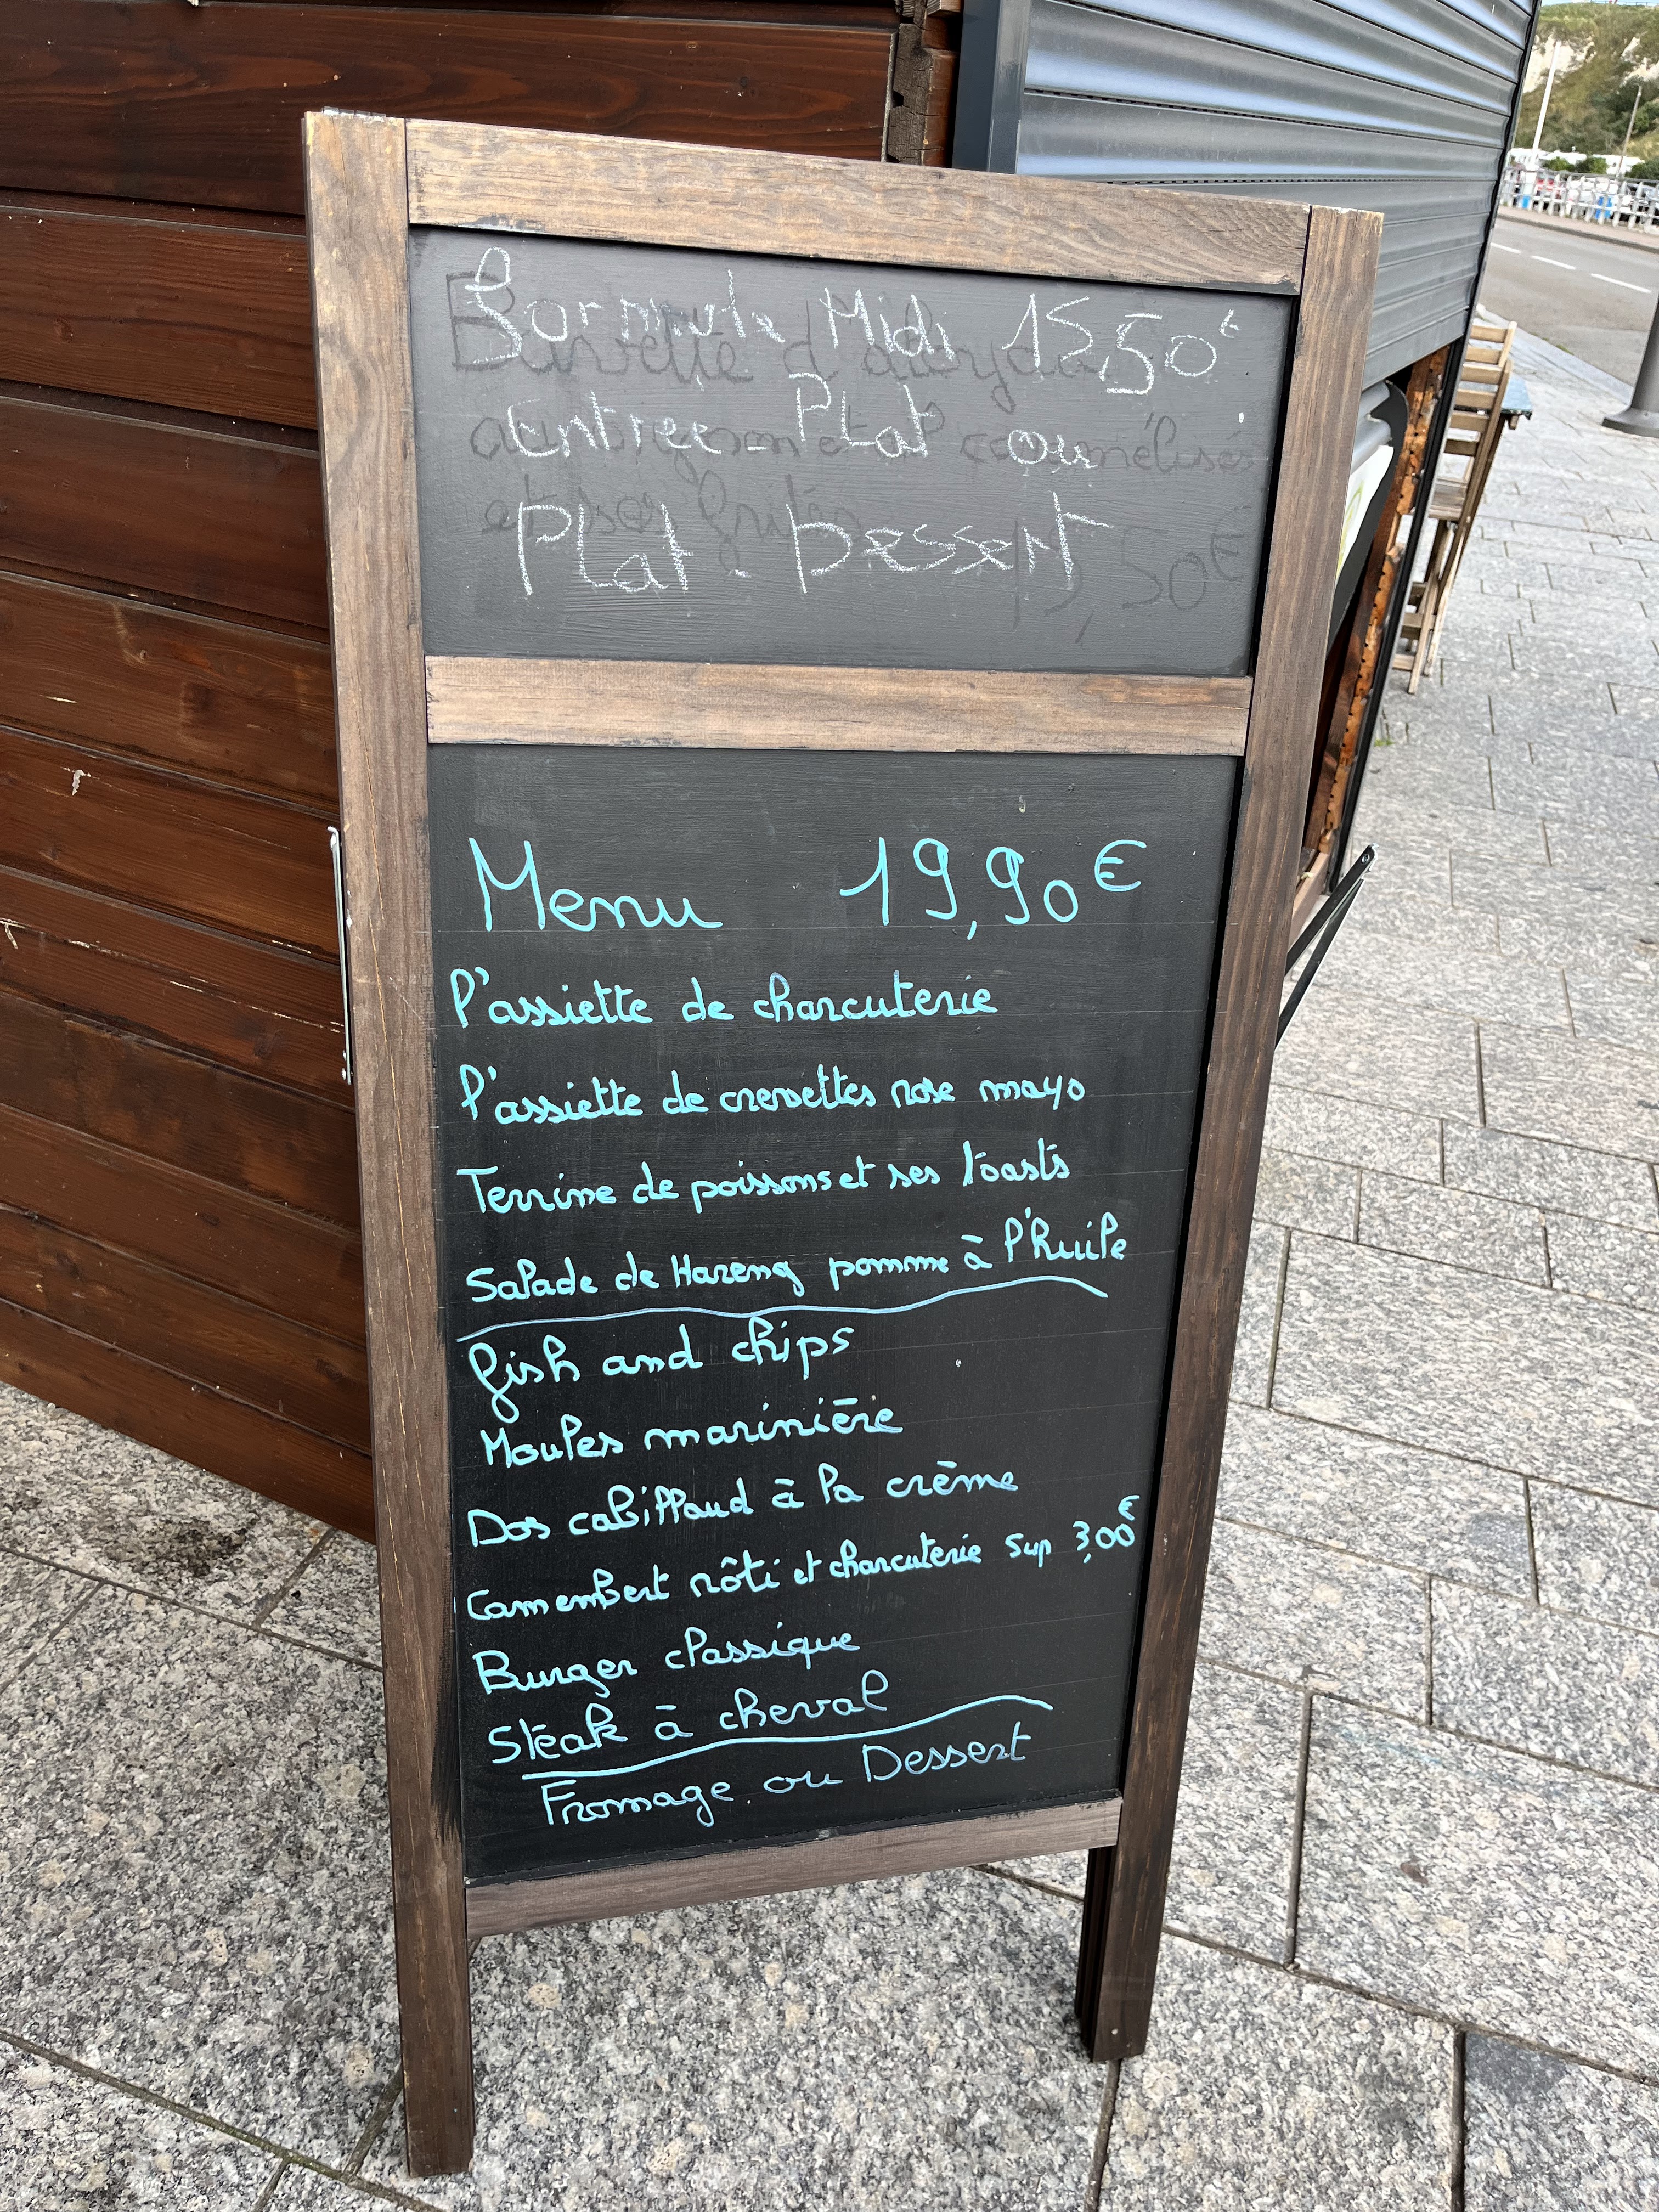 Formule Midi 15,50€
Entrée - Plat ou
Plat - Dessert
Menu 19,90€
l'assiette de charcuterie
l'assiette de crevettes rose mayo
Terrine de poissons et ses toasts
Salade de Hareng pomme à l'huile
fish and chips
Moules marinière
Dos cabillaud à la crème
Camembert rôti et charcuterie sup 3,00€
Burger classique
Steak à cheval
Fromage ou Dessert